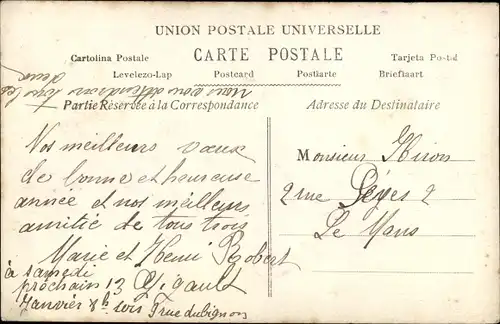 UNION POSTALE UNIVERSELLE
Cartolina Postale CARTE POSTALE Tarjeta Postal
Levelezo-Lap Postcard Postkarte Briefkaart
Nous vous attendron tous les
deux
Partie Réservée à la Correspondance
Adresse du Destinataire
Nos meilleurs vœux
de bonne et heureuse
année et nos meilleurs
amitié de tous trois
Marie et Henri Robert
à samedi
prochain 13 Gigault
Janvier 8h soir 7 rue dubignon
Monsieur Hiron
2 rue 2
Le Mans